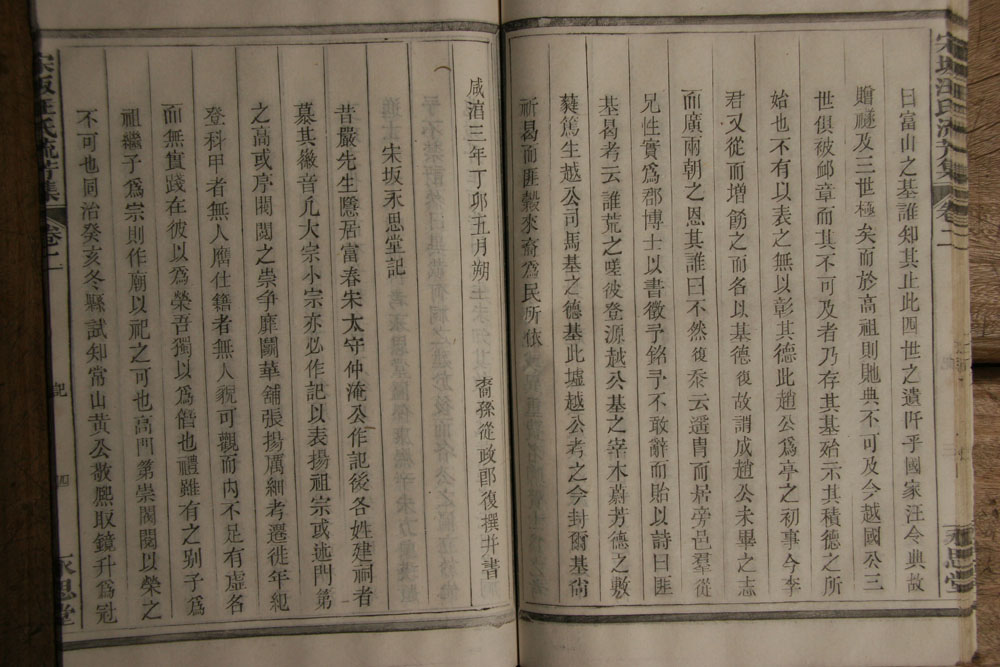 曰富山之基誰知其止此四世之遺阡乎國家汪令典故
贈襚及三世極矣而於高祖則貤典不可及今越國公三
世俱被䘏章而其不可及者乃存其基始示其積德之所
始也不有以表之無以彰其德此趙公爲亭之初事今李
君又從而增餝之而名以基德復故謂成趙公未畢之志
而廣兩朝之恩其誰曰不然復忝云遥冑而居旁邑羣從
兄性實爲郡博士以書徵予銘予不敢辭而貽以詩曰匪
基曷考云誰荒之嗟彼登源越公基之宰木蔚芳德之敷
蕤篤生越公司馬基之德基此墟越公考之今封爾基尙
祈曷而匪糓來裔爲民所依
咸湻三年丁卯五月朔 裔孫從政郎復撰幷書
宋坂永思堂記
昔嚴先生隱居富春朱太守仲淹公作記後各姓建祠者
慕其徽音凡大宗小宗亦必作記以表揚祖宗或述門第
之高或序閥閱之崇争靡鬬華舖張揚厲細考遷徙年紀
登科甲者無人膺仕籍者無人貌可觀而内不足有虚名
而無實踐在彼以爲榮吾獨以爲僭也禮雖有之别子爲
祖繼子爲宗則作廟以祀之可也高門第崇閥閱以榮之
不可也同治癸亥冬縣試知常山黄公敬熙取鏡升爲冠
宋坂汪氏流芳集 卷二
記 四
永思堂
宋坂汪氏流芳集 卷二
永思堂